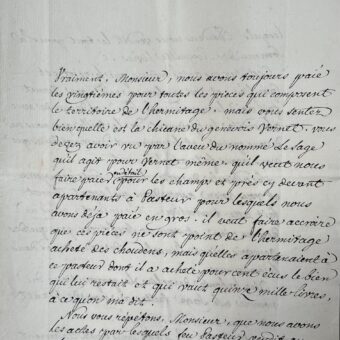 Vraiment, Monsieur, nous avons toujours paié
les vingtièmes pour toutes les pieces qui composent
le territoire de l'hermitage. mais vous sentez
bien quelle est la chicane du genevois Vernet. vous
devez avoir vu par l'aveu du nommé Le Sage
qui agit pour Vernet même, qu'il veut nous
faire paier en détail pour les champs et prés cy devant
apartenants à Pasteur pour lesquels nous
avons déja paié en gros. il veut faire accroire
que ces pièces ne sont point de l'hermitage
acheté des choudens, mais quelles apartenaient à
ce pasteur dont il a acheté pour cent écus le bien
qui lui restait et qui vaut quinze mille livres,
à ce qu'on m'a dit.
Nous vous répétons, Monsieur, que nous avons
les actes par lesquels feu Pasteur vendit